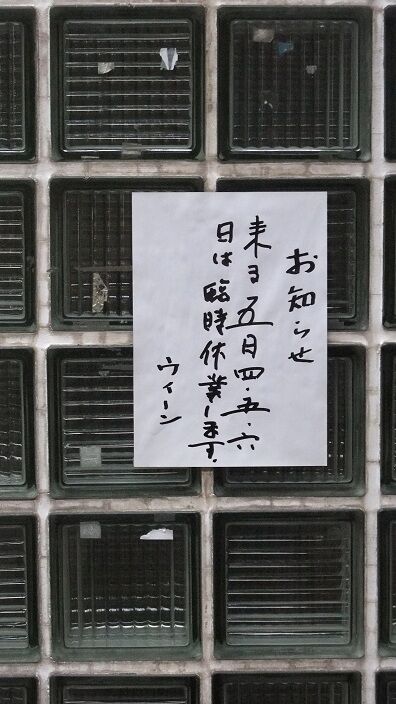 お知らせ
来る五日四・五・六
日は臨時休業します.
ウィーン